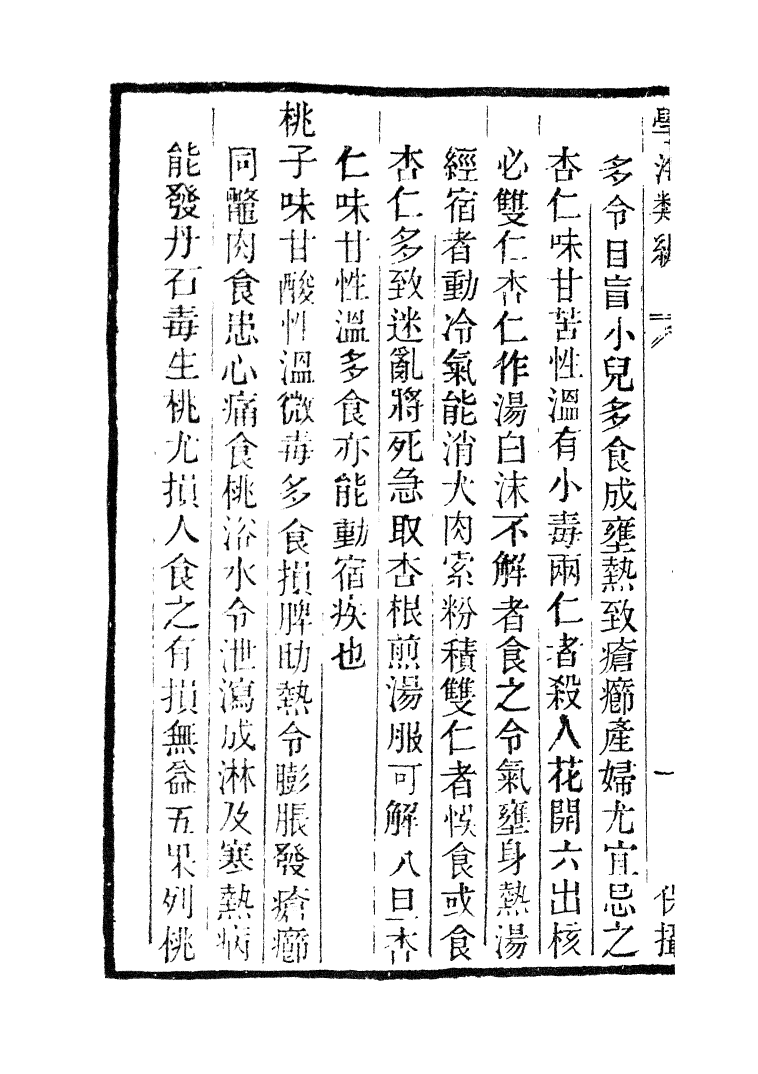 學海類編
一
保攝
多令目盲小兒多食成壅熱致瘡癤產婦尤宜忌之
杏仁味甘苦性溫有小毒兩仁者殺人花開六出核
必雙仁杏仁作湯白沫不解者食之令氣壅身熱湯
經宿者動冷氣能消犬肉索粉積雙仁者悞食或食
杏仁多致迷亂將死急取杏根煎湯服可解八旦杏
仁味甘性溫多食亦能動宿疾也
桃子味甘酸性溫微毒多食損脾助熱令膨脹發瘡癤
同鼈肉食患心痛食桃浴水令泄瀉成淋及寒熱病
能發丹石毒生桃尤損人食之有損無益五果列桃